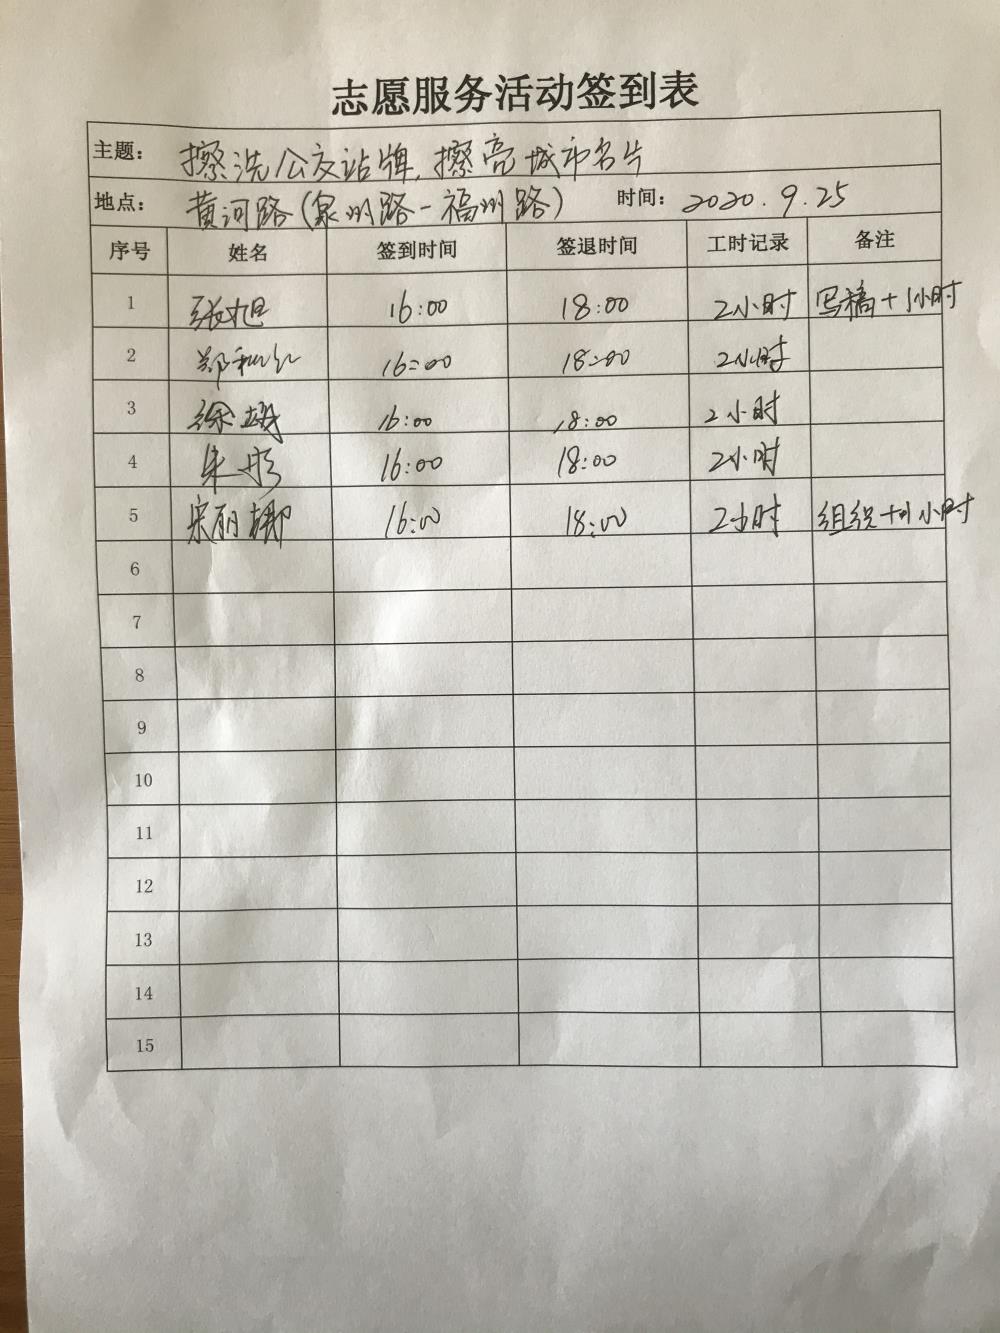 志愿服务活动签到表
主题： 擦洗公交站牌，擦亮城市名片
地点： 黄河路（泉州路-福州路） 时间： 2020.9.25
序号 姓名 签到时间 签退时间 工时记录 备注
1 张旭 16:00 18:00 2小时 写稿+1小时
2 郑 16:00 18:00 2小时
3 徐 16:00 18:00 2小时
4 朱 16:00 18:00 2小时
5 宋丽娜 16:00 18:00 2小时 组织+1小时
6
7
8
9
10
11
12
13
14
15